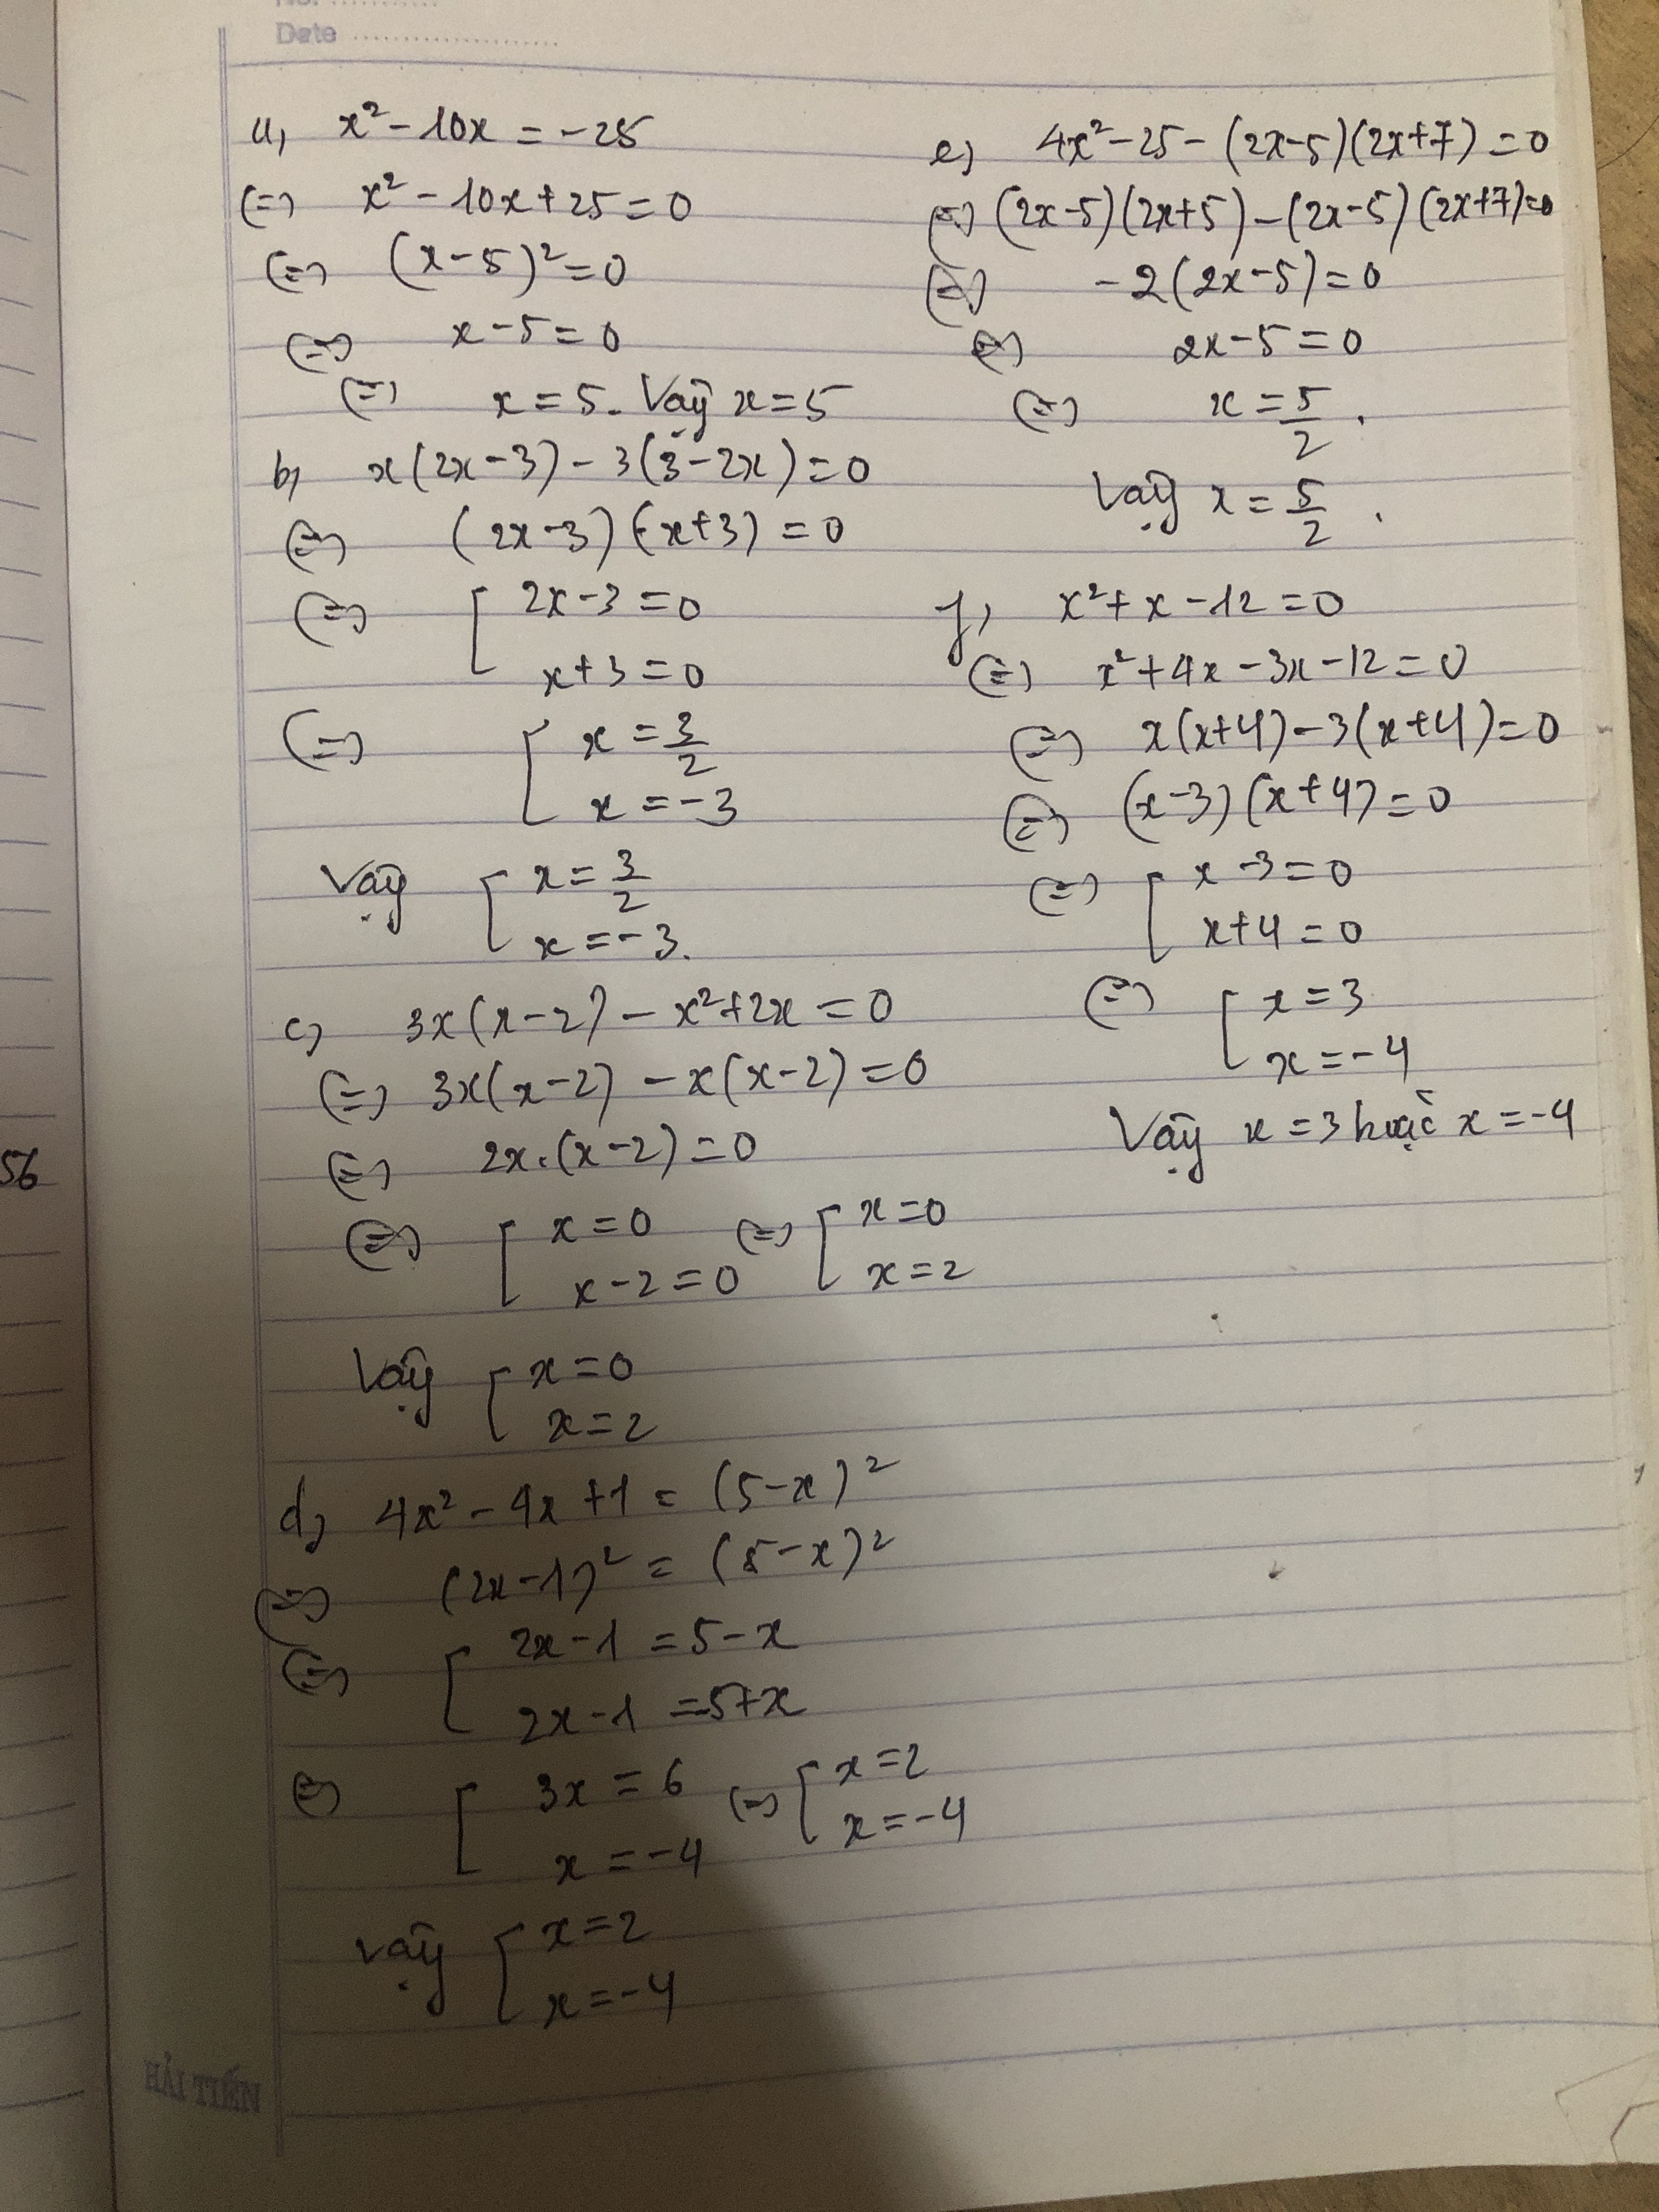 No. ............
Date .......................
a, x² - 10x = -25
(=) x² - 10x + 25 = 0
(=) (x-5)² = 0
(=) x - 5 = 0
(=) x = 5. Vậy x = 5
b, x(2x-3) - 3(3-2x) = 0
(=) (2x-3)(x+3) = 0
(=) [ 2x-3 = 0
x+3 = 0
(=) [ x = 3/2
x = -3
Vậy [ x = 3/2
x = -3.
c, 3x(x-2) - x² + 2x = 0
(=) 3x(x-2) - x(x-2) = 0
(=) 2x.(x-2) = 0
(=) [ x = 0 (=) [ x = 0
x-2 = 0 x = 2
Vậy [ x = 0
x = 2
d, 4x² - 4x + 1 = (5-x)²
(=) (2x-1)² = (5-x)²
(=) [ 2x-1 = 5-x
2x-1 = -5+x
(=) [ 3x = 6 (=) [ x = 2
x = -4 x = -4
Vậy [ x = 2
x = -4
e, 4x² - 25 - (2x-5)(2x+7) = 0
(=) (2x-5)(2x+5) - (2x-5)(2x+7) = 0
(=) -2(2x-5) = 0
(=) 2x-5 = 0
(=) x = 5/2.
Vậy x = 5/2.
f, x² + x - 12 = 0
(=) x² + 4x - 3x - 12 = 0
(=) x(x+4) - 3(x+4) = 0
(=) (x-3)(x+4) = 0
(=) [ x-3 = 0
x+4 = 0
(=) [ x = 3
x = -4
Vậy x = 3 hoặc x = -4
56
HẢI TIẾN